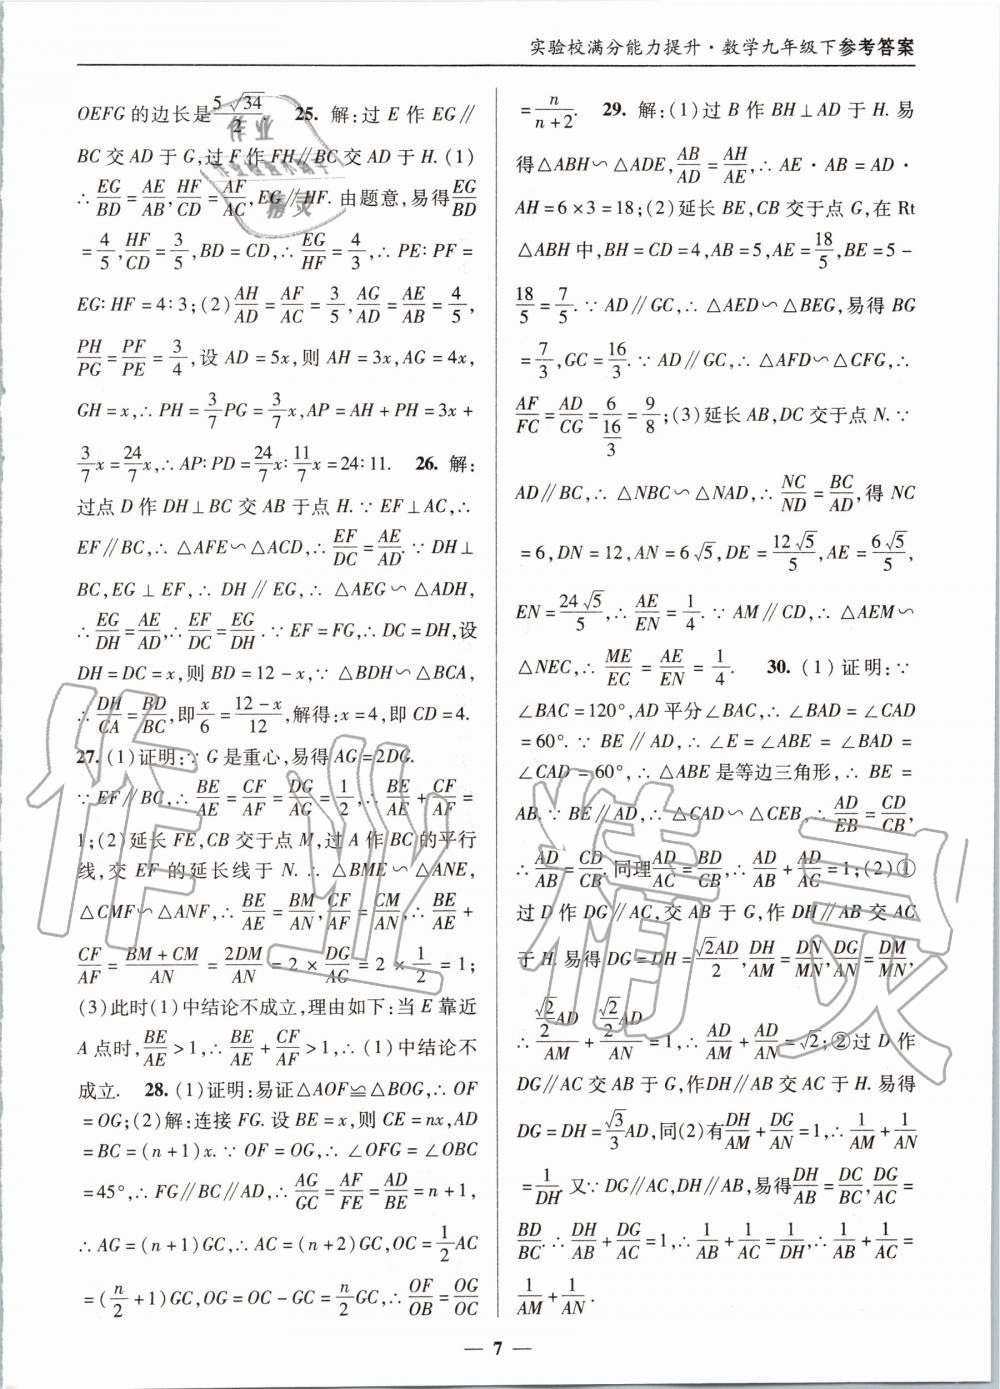 实验校满分能力提升·数学九年级下参考答案
OEFG 的边长是 5√34/2. 25. 解:过 E 作 EG∥
BC 交 AD 于 G,过 F 作 FH∥BC 交 AD 于 H. (1)
∴ EG/BD = AE/AB, HF/CD = AF/AC, EG∥HF. 由题意,易得 EG/BD
= 4/5, HF/CD = 3/5, BD = CD, ∴ EG/HF = 4/3, ∴ PE∶PF =
EG∶HF = 4∶3;(2) AH/AD = AF/AC = 3/5, AG/AD = AE/AB = 4/5,
PH/PG = PF/PE = 3/4, 设 AD = 5x, 则 AH = 3x, AG = 4x,
GH = x, ∴ PH = 3/7 PG = 3/7 x, AP = AH + PH = 3x +
3/7 x = 24/7 x, ∴ AP∶PD = 24/7 x∶11/7 x = 24∶11. 26. 解:
过点 D 作 DH⊥BC 交 AB 于点 H. ∵ EF⊥AC, ∴
EF∥BC, ∴ △AFE∽△ACD, ∴ EF/DC = AE/AD. ∵ DH⊥
BC, EG⊥EF, ∴ DH∥EG, ∴ △AEG∽△ADH,
∴ EG/DH = AE/AD, ∴ EF/DC = EG/DH. ∵ EF = FG, ∴ DC = DH, 设
DH = DC = x, 则 BD = 12 - x, ∵ △BDH∽△BCA,
∴ DH/CA = BD/BC, 即 x/6 = (12-x)/12, 解得:x = 4, 即 CD = 4.
27. (1)证明:∵ G 是重心,易得 AG = 2DG.
∵ EF∥BC, ∴ BE/AE = CF/AF = DG/AG = 1/2, ∴ BE/AE + CF/AF =
1;(2)延长 FE,CB 交于点 M,过 A 作 BC 的平行
线,交 EF 的延长线于 N. ∴ △BME∽△ANE,
△CMF∽△ANF, ∴ BE/AE = BM/AN, CF/AF = CM/AN, ∴ BE/AE +
CF/AF = (BM+CM)/AN = 2DM/AN = 2 × DG/AG = 2 × 1/2 = 1;
(3)此时(1)中结论不成立,理由如下:当 E 靠近
A 点时, BE/AE > 1, ∴ BE/AE + CF/AF > 1, ∴ (1)中结论不
成立. 28. (1)证明:易证△AOF≌△BOG, ∴ OF
= OG;(2)解:连接 FG. 设 BE = x, 则 CE = nx, AD
= BC = (n+1)x. ∵ OF = OG, ∴ ∠OFG = ∠OBC
= 45°, ∴ FG∥BC∥AD, ∴ AG/GC = AF/FE = AD/BE = n+1,
∴ AG = (n+1)GC, ∴ AC = (n+2)GC, OC = 1/2 AC
= (n/2 + 1)GC, OG = OC - GC = n/2 GC, ∴ OF/OB = OG/OC
= n/(n+2). 29. 解:(1)过 B 作 BH⊥AD 于 H. 易
得△ABH∽△ADE, AB/AD = AH/AE, ∴ AE·AB = AD·
AH = 6×3 = 18;(2)延长 BE,CB 交于点 G,在 Rt
△ABH 中, BH = CD = 4, AB = 5, AE = 18/5, BE = 5 -
18/5 = 7/5. ∵ AD∥GC, ∴ △AED∽△BEG, 易得 BG
= 7/3, GC = 16/3. ∵ AD∥GC, ∴ △AFD∽△CFG, ∴
AF/FC = AD/CG = 6/(16/3) = 9/8;(3)延长 AB,DC 交于点 N. ∵
AD∥BC, ∴ △NBC∽△NAD, ∴ NC/ND = BC/AD, 得 NC
= 6, DN = 12, AN = 6√5, DE = 12√5/5, AE = 6√5/5,
EN = 24√5/5, ∴ AE/EN = 1/4. ∵ AM∥CD, ∴ △AEM∽
△NEC, ∴ ME/EC = AE/EN = 1/4. 30. (1)证明:∵
∠BAC = 120°, AD 平分∠BAC, ∴ ∠BAD = ∠CAD
= 60°. ∵ BE∥AD, ∴ ∠E = ∠ABE = ∠BAD =
∠CAD = 60°, ∴ △ABE 是等边三角形, ∴ BE =
AB. ∵ BE∥AD, ∴ △CAD∽△CEB, ∴ AD/EB = CD/CB,
∴ AD/AB = CD/CB. 同理 AD/AC = BD/CB, ∴ AD/AB + AD/AC = 1;(2)①
过 D 作 DG∥AC,交 AB 于 G,作 DH∥AB 交 AC
于 H. 易得 DG = DH = √2AD/2, DH/AM = DN/MN, DG/AN = DM/MN,
∴ (√2/2 AD)/AM + (√2/2 AD)/AN = 1, ∴ AD/AM + AD/AN = √2;②过 D 作
DG∥AC 交 AB 于 G,作DH∥AB 交 AC 于 H. 易得
DG = DH = √3/3 AD, 同(2)有 DH/AM + DG/AN = 1, ∴ 1/AM + 1/AN
= 1/DH. 又∵ DG∥AC, DH∥AB, 易得 DH/AB = DC/BC, DG/AC =
BD/BC. ∴ DH/AB + DG/AC = 1, ∴ 1/AB + 1/AC = 1/DH, ∴ 1/AB + 1/AC =
1/AM + 1/AN.
— 7 —
作业精灵